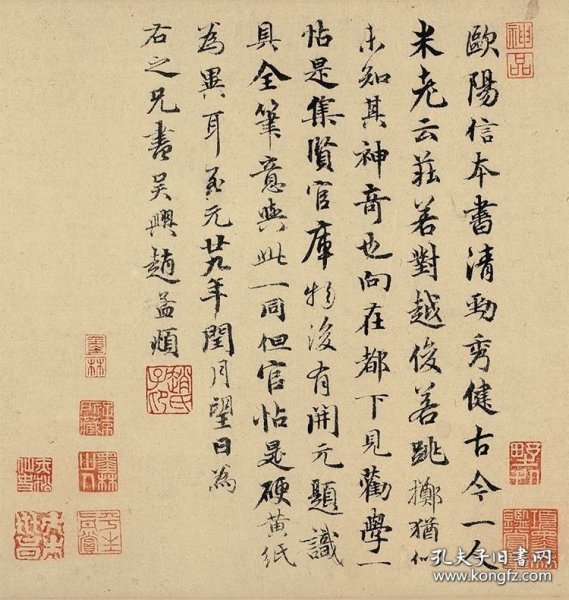 神品
歐陽信本書清勁秀健古今一人
米老云莊若對越俊若跳擲猶似
未知其神奇也向在都下見勸學一
帖是集賢官庫物後有開元題識
具全筆意與此一同但官帖是硬黃紙
為異耳至元廿九年閏月望日為
右之兄書吳興趙孟頫
趙氏子昂
墨林
墨林山人
項墨林鑑賞章
孔夫子旧书网
www.kongfz.com